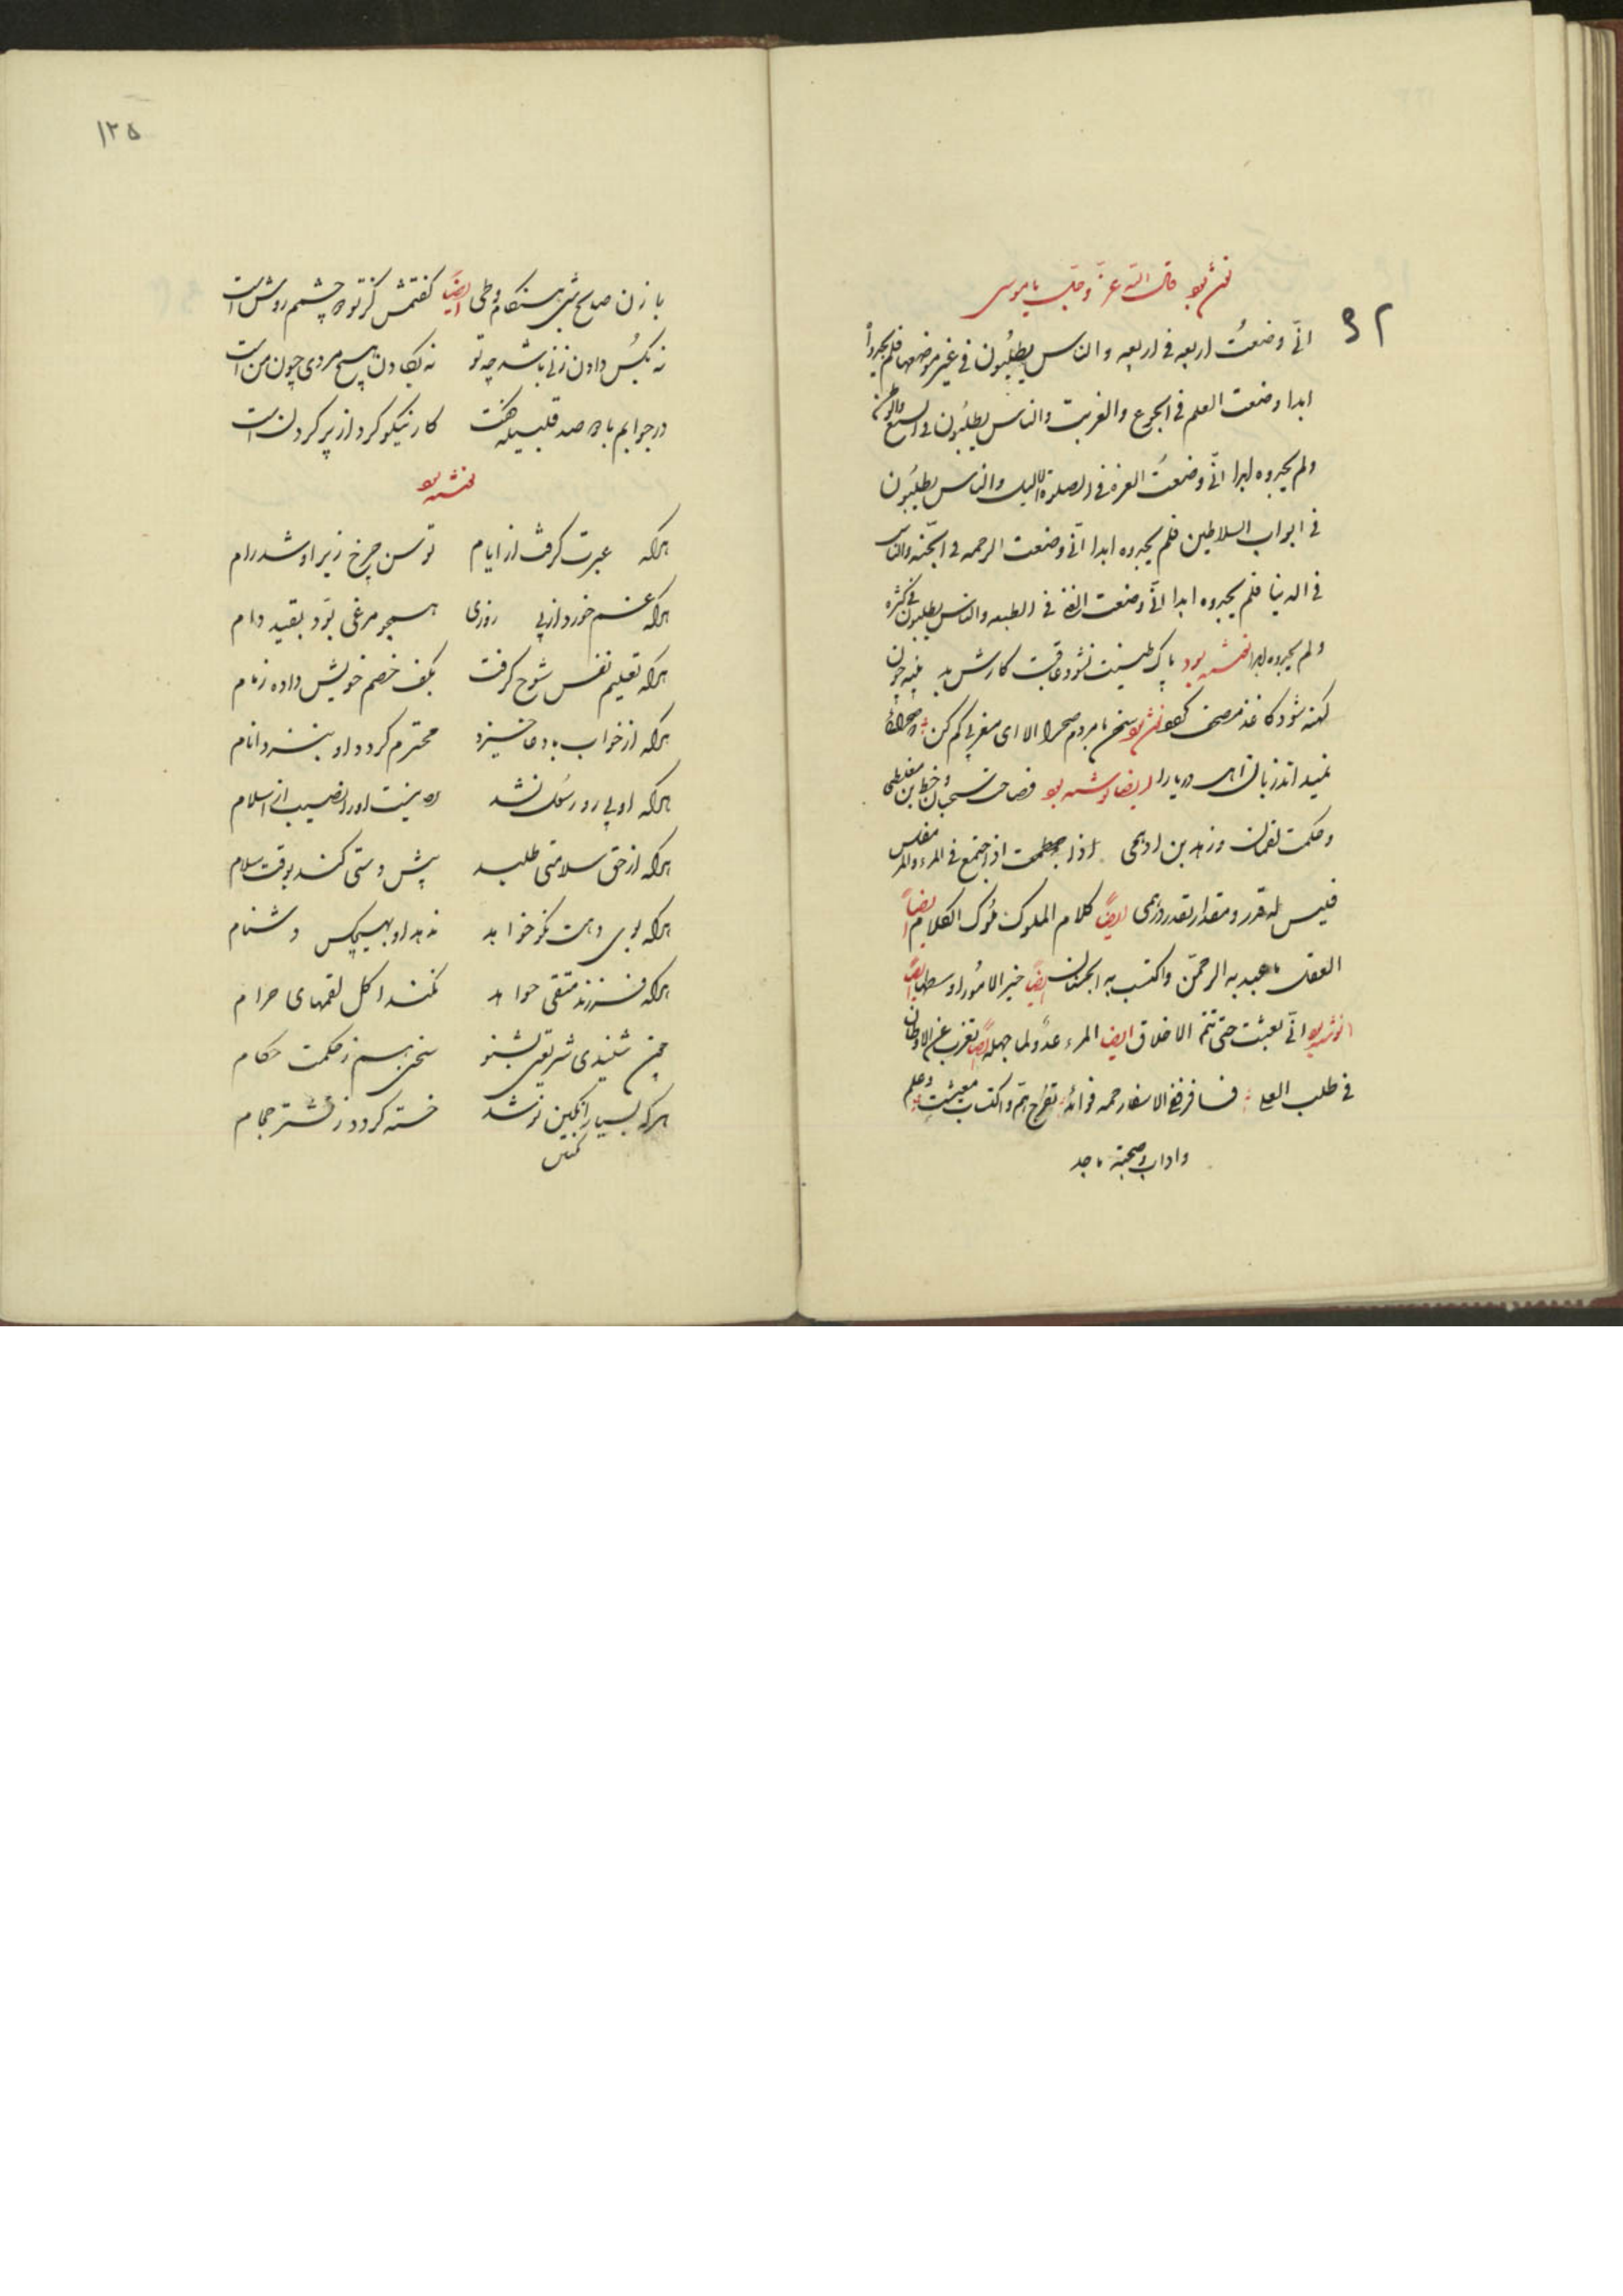 قال الله عزّ و جلّ یا موسی
۹۲
انّی وضعتُ اربعه فی اربعه و الناس یطلبُون فی غیر موضعها فلم یجدوا
ابدا وضعت العلم فی الجوع والغربت والناس یطلبُون فی الشبع والوطن
ولم یجدوه ابدا انّی وضعتُ العزه فی الصلوة اللیل والناس یطلبُون
فی ابواب السلاطین فلم یجدوه ابدا انّی وضعت الرحمه فی الجنّه والناس
فی الدنیا فلم یجدوه ابدا انّی وضعت فی والناس یطلبون فی کثره
ولم یجدوه ابدا نوشته بود پاک طینت نشود عاقبت کارش بد پنبه چون
کهنه شود کاغذ مصحف سخن با مردم صحرا الا ای مغربی کم کن که صحرائی
نمیداند زبان اهل دریا را ایضا نوشته بود فصاحت سحبان و خط ابن مقله
و حکمت لقمان و زهد بن ادهمی اذا اجتمع فی المرء والمرء مفلس
فلیس له قدر و مقدار بقدر درهمی ایضاً کلام الملوک ملُوک الکلام ایضاً
العقل ما عبد به الرحمن واکتسب به الجنان ایضاً خیر الامُور اوسطها ایضاً
انّی بعثت حتی تتم الاخلاق ایضا المرء عدُو لما جهله ایضاً تغرب عن الاوطان
فی طلب العلی فسافر ففی الاسفار خمه فوائد تفرج همّ و اکتساب معیشت و علم
و اداب و صحبته ماجد
۱۲۵
با زن صالح شبی هنگام وطی ایضاً گفتمش کز تو چشمم روشن است
نه بکُس دادن زنی باشد چه تو نه بگادن هیچ مردی چون من است
در جوابم با صد گفت کار نیکو کردن از پر کردن است
نوشته بود
هرکه عبرت گرفت از ایام توسن چرخ زیر او شد رام
هرکه غم خورد از پی روزی همچو مرغی بوَد بقید دام
هرکه تعلیم نفس شوخ گرفت بکف خصم خویش داده زمام
هرکه از خواب با دعا خیزد محترم گردد او بنزد انام
هرکه او پی رو رسُول نشد نیست او را نصیب از اسلام
هرکه از حق سلامتی طلبد پیش دستی کند بوقت سلام
هرکه بوی دهن نکو خواهد ندهد او بهیچکس دشنام
هرکه فرزند متقی خواهد نکند اکل لقمهای حرام
چون شنیدی شریعتی بشنو سخنی هم ز حکمت حکام
هرکه بسیار انگبین نوشد خسته گردد ز نشتر حجام